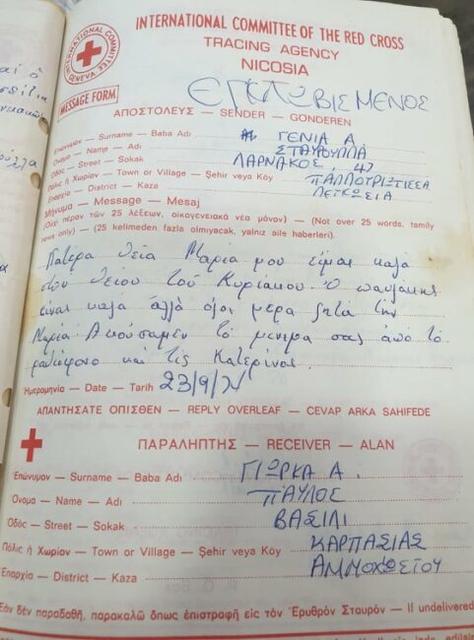 INTERNATIONAL COMMITTEE OF THE RED CROSS
TRACING AGENCY
NICOSIA
INTERNATIONAL COMMITTEE
GENEVA
MESSAGE FORM
ΑΠΟΣΤΟΛΕΥΣ — SENDER — GONDEREN
Επώνυμον — Surname — Baba Adi ΓΕΝΙΑ Α.
Ονομα — Name — Adi ΣΤΑΥΡΟΥΛΛΑ
Οδός — Street — Sokak ΛΑΡΝΑΚΟΣ 47
Πόλις ή Χωρίον — Town or Village — Şehir veya Köy ΠΑΛΛΟΥΡΙΩΤΙΣΣΑ
Επαρχία — District — Kaza ΛΕΥΚΩΣΙΑ
Μήνυμα — Message — Mesaj
(Οχι πέραν τῶν 25 λέξεων, οἰκογενειακά νέα μόνον) — (Not over 25 words, family
news only) — (25 kelimeden fazla olmiyacak, yalniz aile haberleri).
Πατέρα θεία Μαρία μου είμαι καλά
στου θείου του Κυριάκου. Ο
είναι καλά αλλά όλοι μερα ζητά την
Μαρία. Ακούσαμεν το μενημα σας από το
ραδιόφονο και τις Κατερίνας.
Ημερομηνία — Date — Tarih 23/9/74
ΑΠΑΝΤΗΣΑΤΕ ΟΠΙΣΘΕΝ — REPLY OVERLEAF — CEVAP ARKA SAHIFEDE
ΠΑΡΑΛΗΠΤΗΣ — RECEIVER — ALAN
Επώνυμον — Surname — Baba Adi ΓΙΩΡΚΑ Α.
Ονομα — Name — Adi ΠΑΥΛΟΣ
Οδός — Street — Sokak ΒΑΣΙΛΙ
Πόλις ή Χωρίον — Town or Village — Şehir veya Köy ΚΑΡΠΑΣΙΑΣ
Επαρχία — District — Kaza ΑΜΜΟΧΩΣΤΟΥ
Εάν δέν παραδοθῇ, παρακαλῶ ὅπως ἐπιστραφῇ εἰς τόν Ἐρυθρόν Σταυρόν — If undelivered